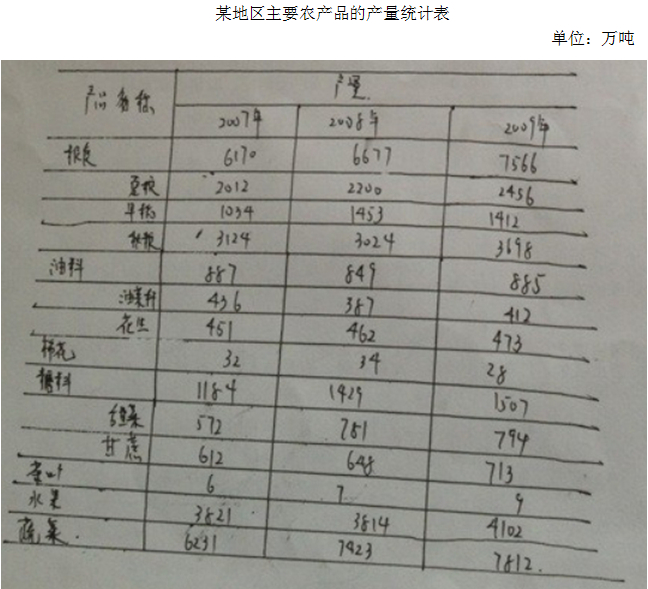 某地区主要农产品的产量统计表
单位：万吨
产品名称 产量
2007年 2008年 2009年
粮食 6170 6677 7566
夏粮 2012 2200 2456
早稻 1034 1453 1412
秋粮 3124 3024 3698
油料 887 849 885
油菜籽 436 387 412
花生 451 462 473
棉花 32 34 28
糖料 1184 1429 1507
甜菜 572 781 794
甘蔗 612 648 713
茶叶 6 7 9
水果 3821 3814 4102
蔬菜 6231 7423 7812